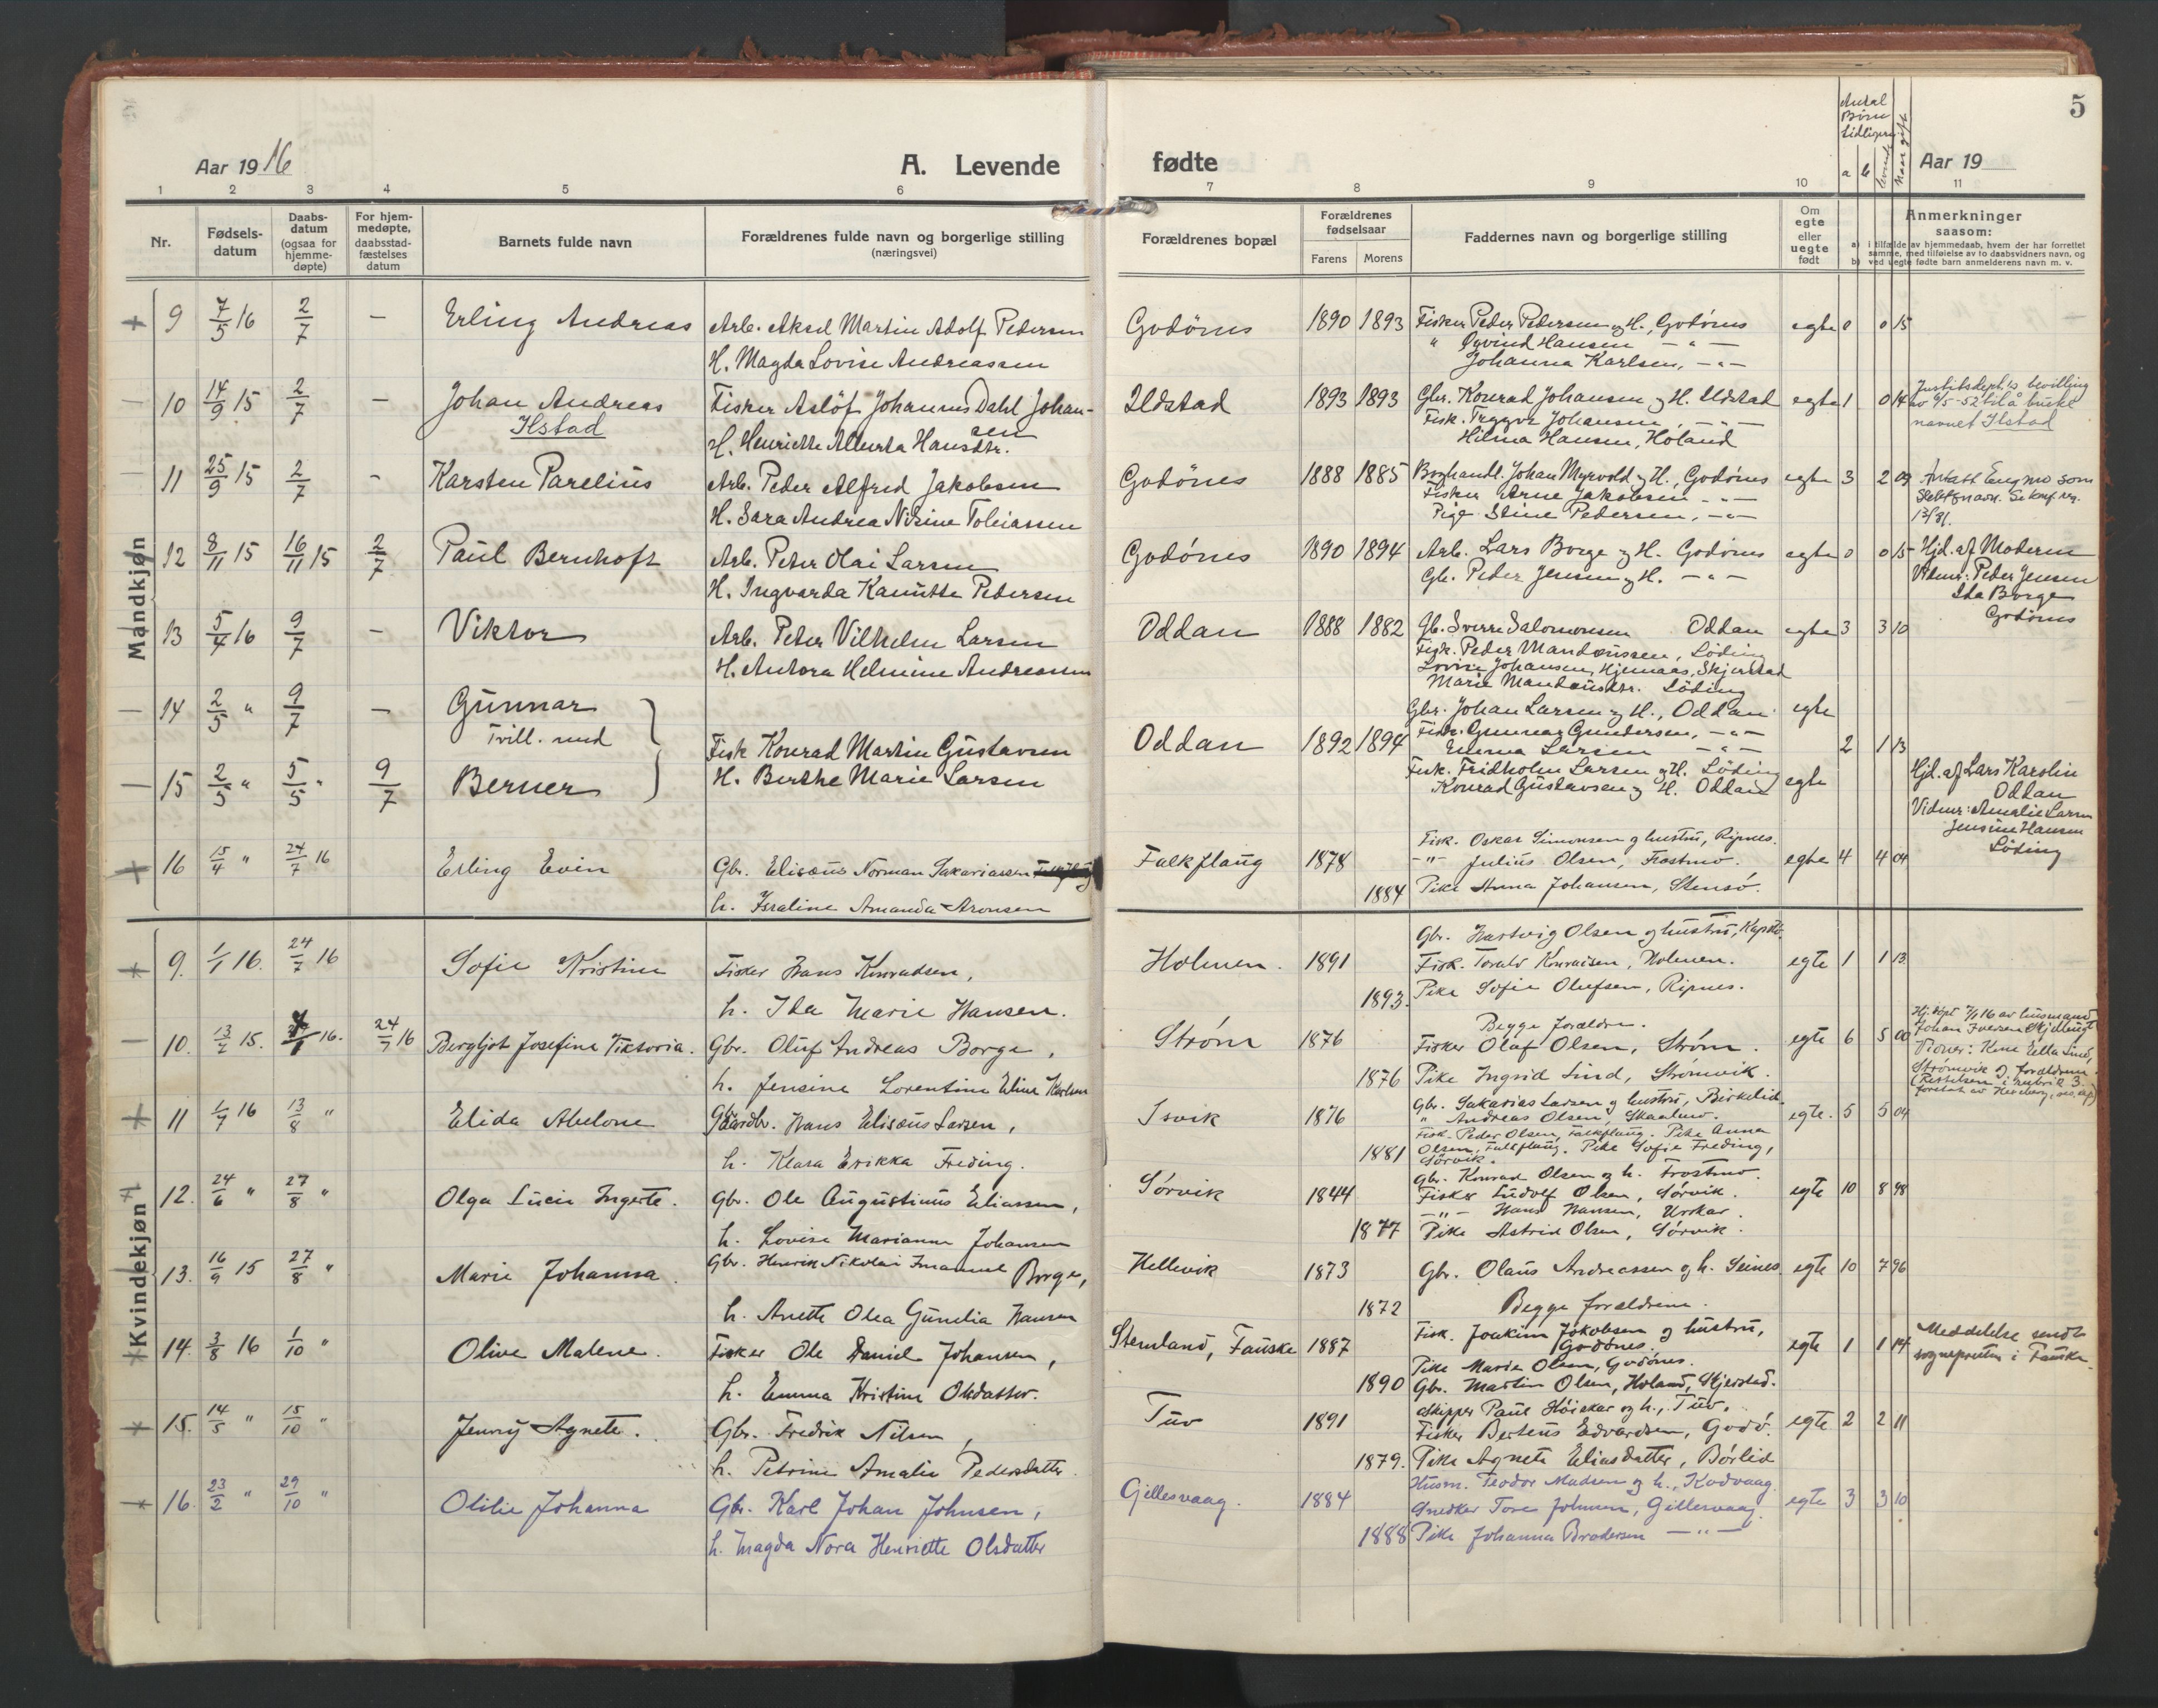 Aar 1916
A. Levende
fødte
Aar 19
5
Antal Børn tidligere
a b levende Naar gift
1 2 3 4 5 6 7 8 9 10 11
Nr.
Fødsels-datum
Daabs-datum (ogsaa for hjemme-døpte)
For hjem-medøpte, daabsstad-fæstelses datum
Barnets fulde navn
Forældrenes fulde navn og borgerlige stilling (næringsvei)
Forældrenes bopæl
Forældrenes fødselsaar
Farens Morens
Faddernes navn og borgerlige stilling
Om egte eller uegte født
Anmerkninger saasom:
a) i tilfælde av hjemmedaab, hvem der har forrettet samme, med tilføielse av to daabsvidners navn, og
b) ved uegte fødte barn anmelderens navn m. v.
Mandkjøn
9 7/5 16 2/7 — Erling Andreas
Arb. Aksel Martin Adolf Pedersen
H. Magda Lovise Andreassen
Godönes 1890 1893
Fisker Peder Pedersen og H., Godönes
" Øyvind Hansen — " —
Johanna Karlsen, — " —
egte 0 0 15
10 14/9 15 2/7 — Johan Andreas
Ilstad
Fisker Aslöf Johannes Dahl Johan-
sen
H. Henriette Alberta Hansdtr.
Ildstad 1893 1893
Gbr. Konrad Johansen og H. Ildstad
Fisk. Trygve Johansen, — " —
Hilma Hansen, Höland
egte 1 0 14
Justitsdept.s bevilling
av 9/5-52 til å bruke
navnet Ilstad
11 25/9 15 2/7 - Karsten Parelius
Arb. Peder Alfred Jakobsen
H. Sara Andrea Nisine Tobiassen
Godönes 1888 1885
Boghandl. Johan Myrvold og H., Godönes
Fisker Arne Jakobsen - " -
Pige Stine Pedersen, - " -
egte 3 2 09
Antatt Engmo som
slektsnavn. Se konf.reg.
13/31.
12 8/11 15 16/11 15 2/7 Paul Bernhoft
Arb. Peter Olai Larsen
H. Ingvarda Kanutte Pedersen
Godónes 1890 1894
Arb. Lars Borge og H. Godönes
Gb. Peder Jensen og H. — " —
egte 0 0 15
Hjd. af Moderen
Vidner: Peder Jensen
Ida Borge
Godönes
13 5/4 16 9/7 - Viktor
Arb. Peter Vilhelm Larsen
H. Antora Helmine Andreassen
Oddan 1888 1882
Gb. Sverre Salomonsen Oddan
Fisk. Peder Mandæussen, Löding
Lovise Johansen, Hjemaas, Skjerstad
Marie Mandæusdtr. Löding
egte 3 3 10
14 2/5 " 9/7 — Gunnar
Tvill. med
15 2/5 " 5/5 " 9/7 Berner
Fisk Konrad Martin Gustavsen
H. Berthe Marie Larsen
Oddan 1892 1894
Gbr. Johan Larsen og H., Oddan egte
Fisk. Gunnar Gundersen, — " —
Emma Larsen — " —
Fisk. Fridholm Larsen og H. Löding
Konrad Gustavsen og H. Oddan egte
2 1 13
Hjd. af Lars Karolin
Oddan
Vidner: Amalie Larsen
Jensine Hansen
Löding
16 15/4 " 24/7 16 Erling Evin
Gbr. Elisæus Norman Sakariassen
h. Israline Amanda Aronsen
Falkflaug 1878 1884
Fisk. Oskar Simonsen og hustru, Ripnes.
— " — Julius Olsen, Frostmo.
Pike Anna Johansen, Stensö.
egte 4 4 04
Kvindekjøn
9. 1/1 16. 24/7 16 Sofie Kristine
Fisker Hans Konradsen,
h. Ida Marie Hansen.
Holmen. 1891 1893.
Gbr. Hartvig Olsen og hustru, Kapstö.
Fisk. Torald Konradsen, Holmen.
Pike Sofie Olufsen, Ripnes.
egte 1 1 13
10. 13/2 15. 16. 24/7 16 Bergljot Josefine Viktoria.
Gbr. Oluf Andreas Borge,
h. Jensine Lorentine Eline Karlsen
Strøm 1876 1876
Begge forældre.
Fisker Olaf Olsen, Strøm.
Pike Ingrid Lind, Strømvik.
egte 6 5 00
Hj.döpt 7/1 16 av husmand
Johan Iversen Skjellingt
Vidner: Kone Ella Lind,
Strømvik og forældrene.
(Rettelsen i rubrik 3
11 1/7 16 13/8 " Elida Abelone
Gaardbr. Hans Elisæus Larsen,
h. Klara Erikka Freding.
Isvik 1876 1881
Gbr. Sakarias Larsen og hustru, Birkelid.
" Andreas Olsen, Skaalmo.
Fisk. Peder Olsen, Falkflaug. Pike Anna
Olsen, Falkflaug. Pike Sofie Freding,
Sørvik.
egte. 5 5 04
12. 24/6 " 27/8 " Olga Lucie Ingerte.
Gbr. Ole Augustinus Eliassen,
h. Lovise Marianne Johansen
Sørvik 1844 1877
Gbr. Konrad Olsen og h. Frostmo.
Fisker Ludolf Olsen, Sørvik.
— " — Hans Hansen, Urskar.
Pike Astrid Olsen, Sørvik.
egte 10 8 98
13. 16/9 15 27/8 " Marie Johanna.
Gbr. Henrik Nikolai Imanuel Borge,
h. Anette Olea Gunelia Hansen
Hellevik 1873 1872
Gbr. Olaus Andreassen og h. Seines.
Begge forældrene.
egte 10 7 96
14. 3/8 16 1/10 " Olive Malene.
Fisker Ole Daniel Johansen,
h. Emma Kristine Olsdatter.
Stemland, Fauske 1887 1890
Fisk. Joakim Jakobsen og hustru,
Godönes.
Pike Marie Olsen, Godönes.
Gbr. Martin Olsen, Holand, Skjerstad.
egte 1 1 14
Meddelelse sendt
sognepresten i Fauske.
15. 14/5 " 15/10 " Jenny Agnete.
Gbr. Fredrik Nilsen,
h. Petrine Amalie Pedersdatter.
Tuv 1891 1879.
Skipper Paul Höiskar og h., Tuv.
Fisker Berteus Edvardsen, Godö.
Pike Agnete Eliasdatter, Børlid
egte 2 2 11
16. 23/2 " 29/10 " Otilie Johanna
Gbr. Karl Johan Johnsen,
h. Magda Nora Henriette Olsdatter
Gillesvaag. 1884 1888
Husm. Teodor Madsen og h., Kodvaag.
Snedker Tore Johnsen, Gillesvaag.
Pike Johanna Brodersen — " —
egte 3 3 10